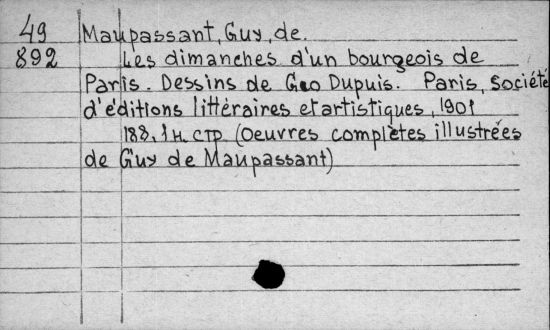 49 Maupassant, Guy, de.
892 Les dimanches d'un bourgeois de
Paris. Dessins de Geo Dupuis. Paris, Société
d'éditions littéraires et artistiques, 1901
188, 1 н. стр (Oeuvres complètes illustrées
de Guy de Maupassant)